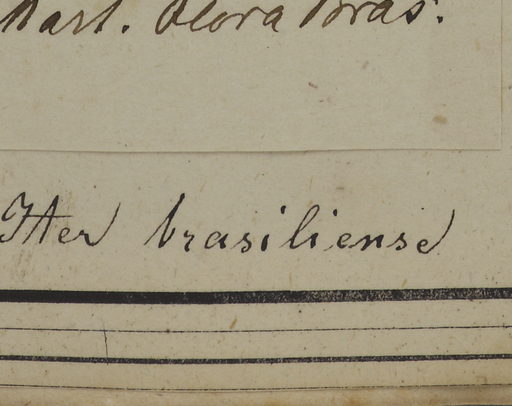 Mart. Flora Bras.
Iter brasiliense